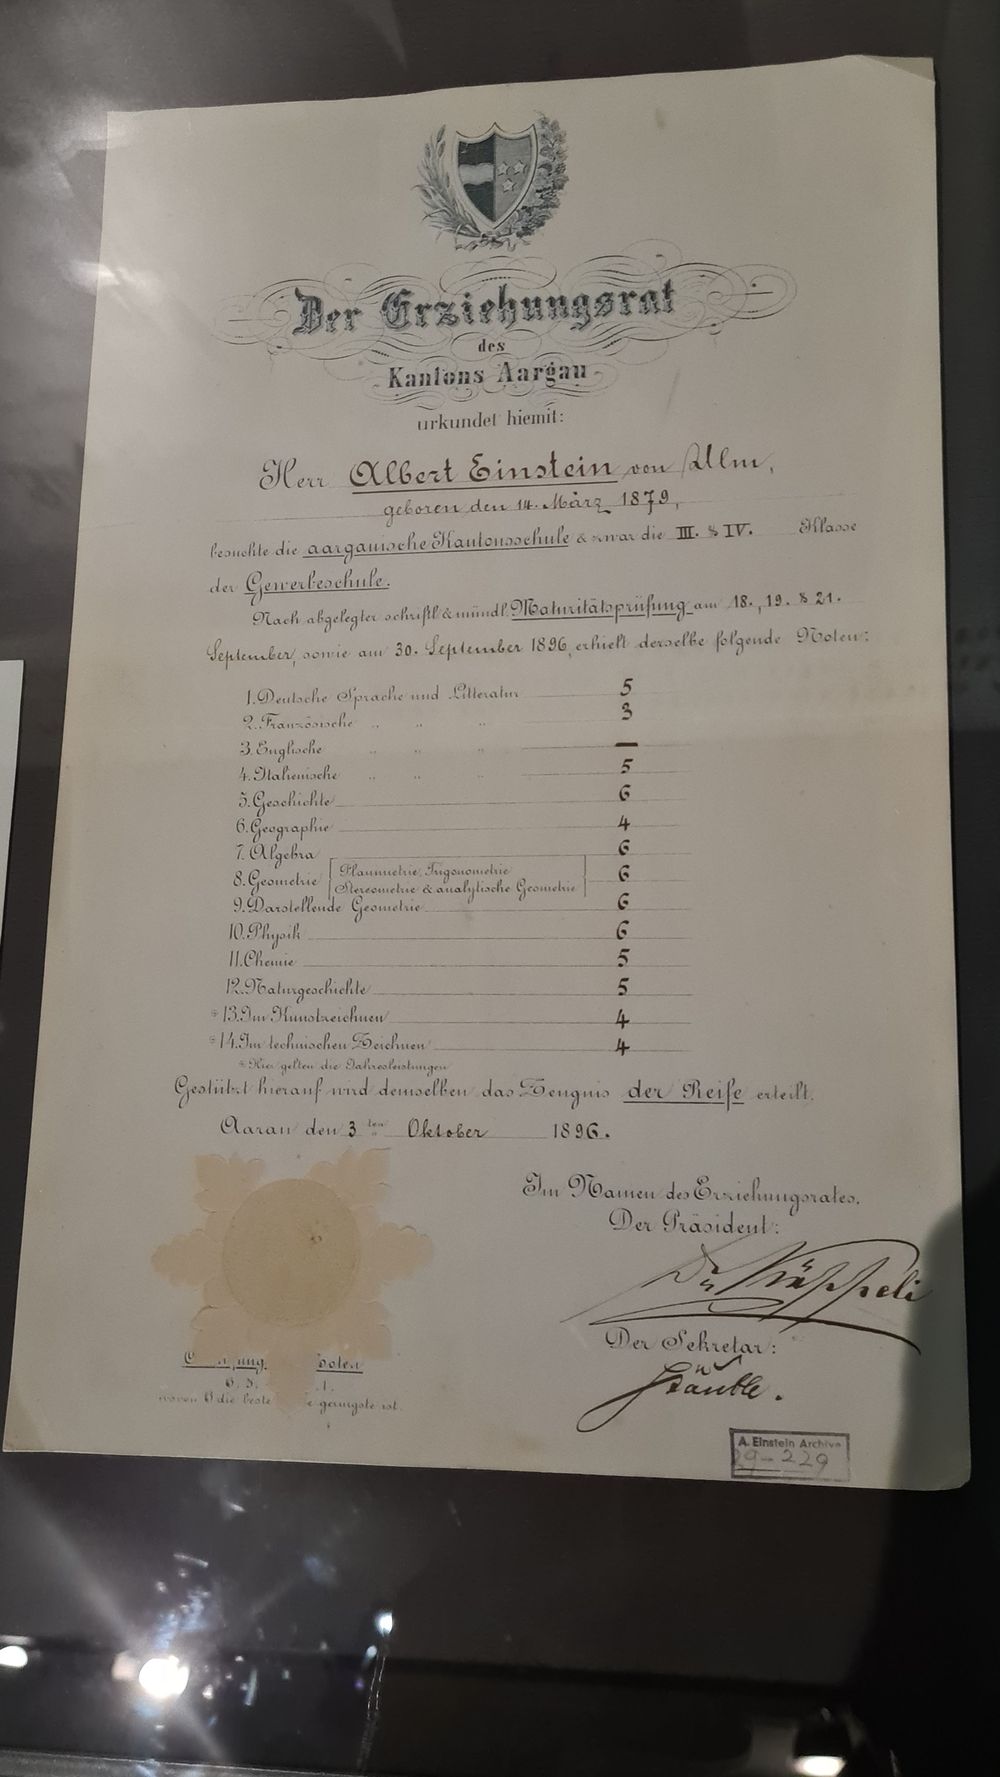 Der Erziehungsrat
des
Kantons Aargau
urkundet hiemit:
Herr Albert Einstein von Ulm,
geboren den 14. März 1879,
besuchte die aargauische Kantonsschule & zwar die III. & IV. Klasse
der Gewerbeschule.
Nach abgelegter schriftl. & mündl. Maturitätsprüfung am 18., 19. & 21.
September, sowie am 30. September 1896, erhielt derselbe folgende Noten:
1. Deutsche Sprache und Litteratur 5
2. Französische " " " 3
3. Englische " " " —
4. Italienische " " " 5
5. Geschichte 6
6. Geographie 4
7. Algebra 6
8. Geometrie { Planimetrie, Trigonometrie } 6
Stereometrie & analytische Geometrie
9. Darstellende Geometrie 6
10. Physik 6
11. Chemie 5
12. Naturgeschichte 5
* 13. Im Kunstzeichnen 4
* 14. Im technischen Zeichnen 4
* Hier gelten die Jahresleistungen
Gestützt hierauf wird demselben das Zeugnis der Reife erteilt.
Aarau den 3ten Oktober 1896.
Im Namen des Erziehungsrates,
Der Präsident:
Dr. Käppeli
Der Sekretär:
Stäuble.
6. 5. 1.
wovon 6 die beste geringste ist.
A. Einstein Archive
29-229